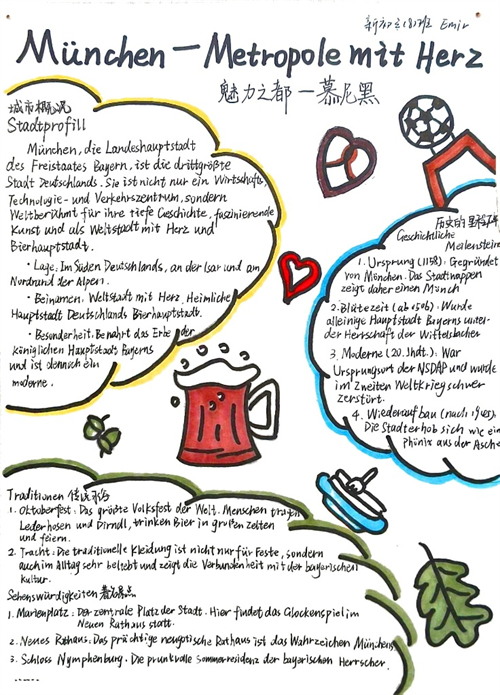 Emir
München – Metropole mit Herz
魅力之都 — 慕尼黑
城市概况
Stadtprofill
München, die Landeshauptstadt
des Freistaates Bayern, ist die drittgrößte
Stadt Deutschlands. Sie ist nicht nur ein Wirtschafts,
Technologie- und Verkehrszentrum, sondern
Weltberühmt für ihre tiefe Geschichte, faszinierende
Kunst und als Weltstadt mit Herz und
Bierhauptstadt.
· Lage. Im Süden Deutschlands, an der Isar und am
Nordrand der Alpen.
· Beinamen. Weltstadt mit Herz, Heimliche
Hauptstadt Deutschlands Bierhauptstadt.
· Besonderheit. Bewahrt das Erbe der
Königlichen Hauptstadt Bayerns
und ist dennoch ein
moderne.
历史的里程碑
Geschichtliche
Meilensteine
1. Ursprung (1158). Gegründet
von München. Das Stadtwappen
zeigt daher einen Mönch
2. Blütezeit (ab 1506). Wurde
alleinige Hauptstadt Bayerns unter
der Herrschaft der Wittelsbacher
3. Moderne (20. Jhdt.). War
Ursprungsort der NSDAP und wurde
im Zweiten Weltkrieg schwer
zerstört.
4. Wiederaufbau (nach 1945).
Die Stadt erhob sich wie ein
phönix aus der Asche
Traditionen 传统
1. Oktoberfest: Das größte Volksfest der Welt. Menschen tragen
Lederhosen und Dirndl, trinken Bier in großen zelten
und feiern.
2. Tracht: Die traditionelle Kleidung ist nicht nur für Feste, sondern
auch im Alltag sehr beliebt und zeigt die Verbundenheit mit der bayerischen
Kultur.
Sehenswürdigkeiten 著名景点
1. Marienplatz: Der zentrale Platz der Stadt. Hier findet das Glockenspiel im
Neuen Rathaus statt.
2. Neues Rathaus. Das prächtige neugotische Rathaus ist das Wahrzeichen Münchens
3. Schloss Nymphenburg. Die prunkvolle Sommerresidenz der bayerischen Herrscher.
......